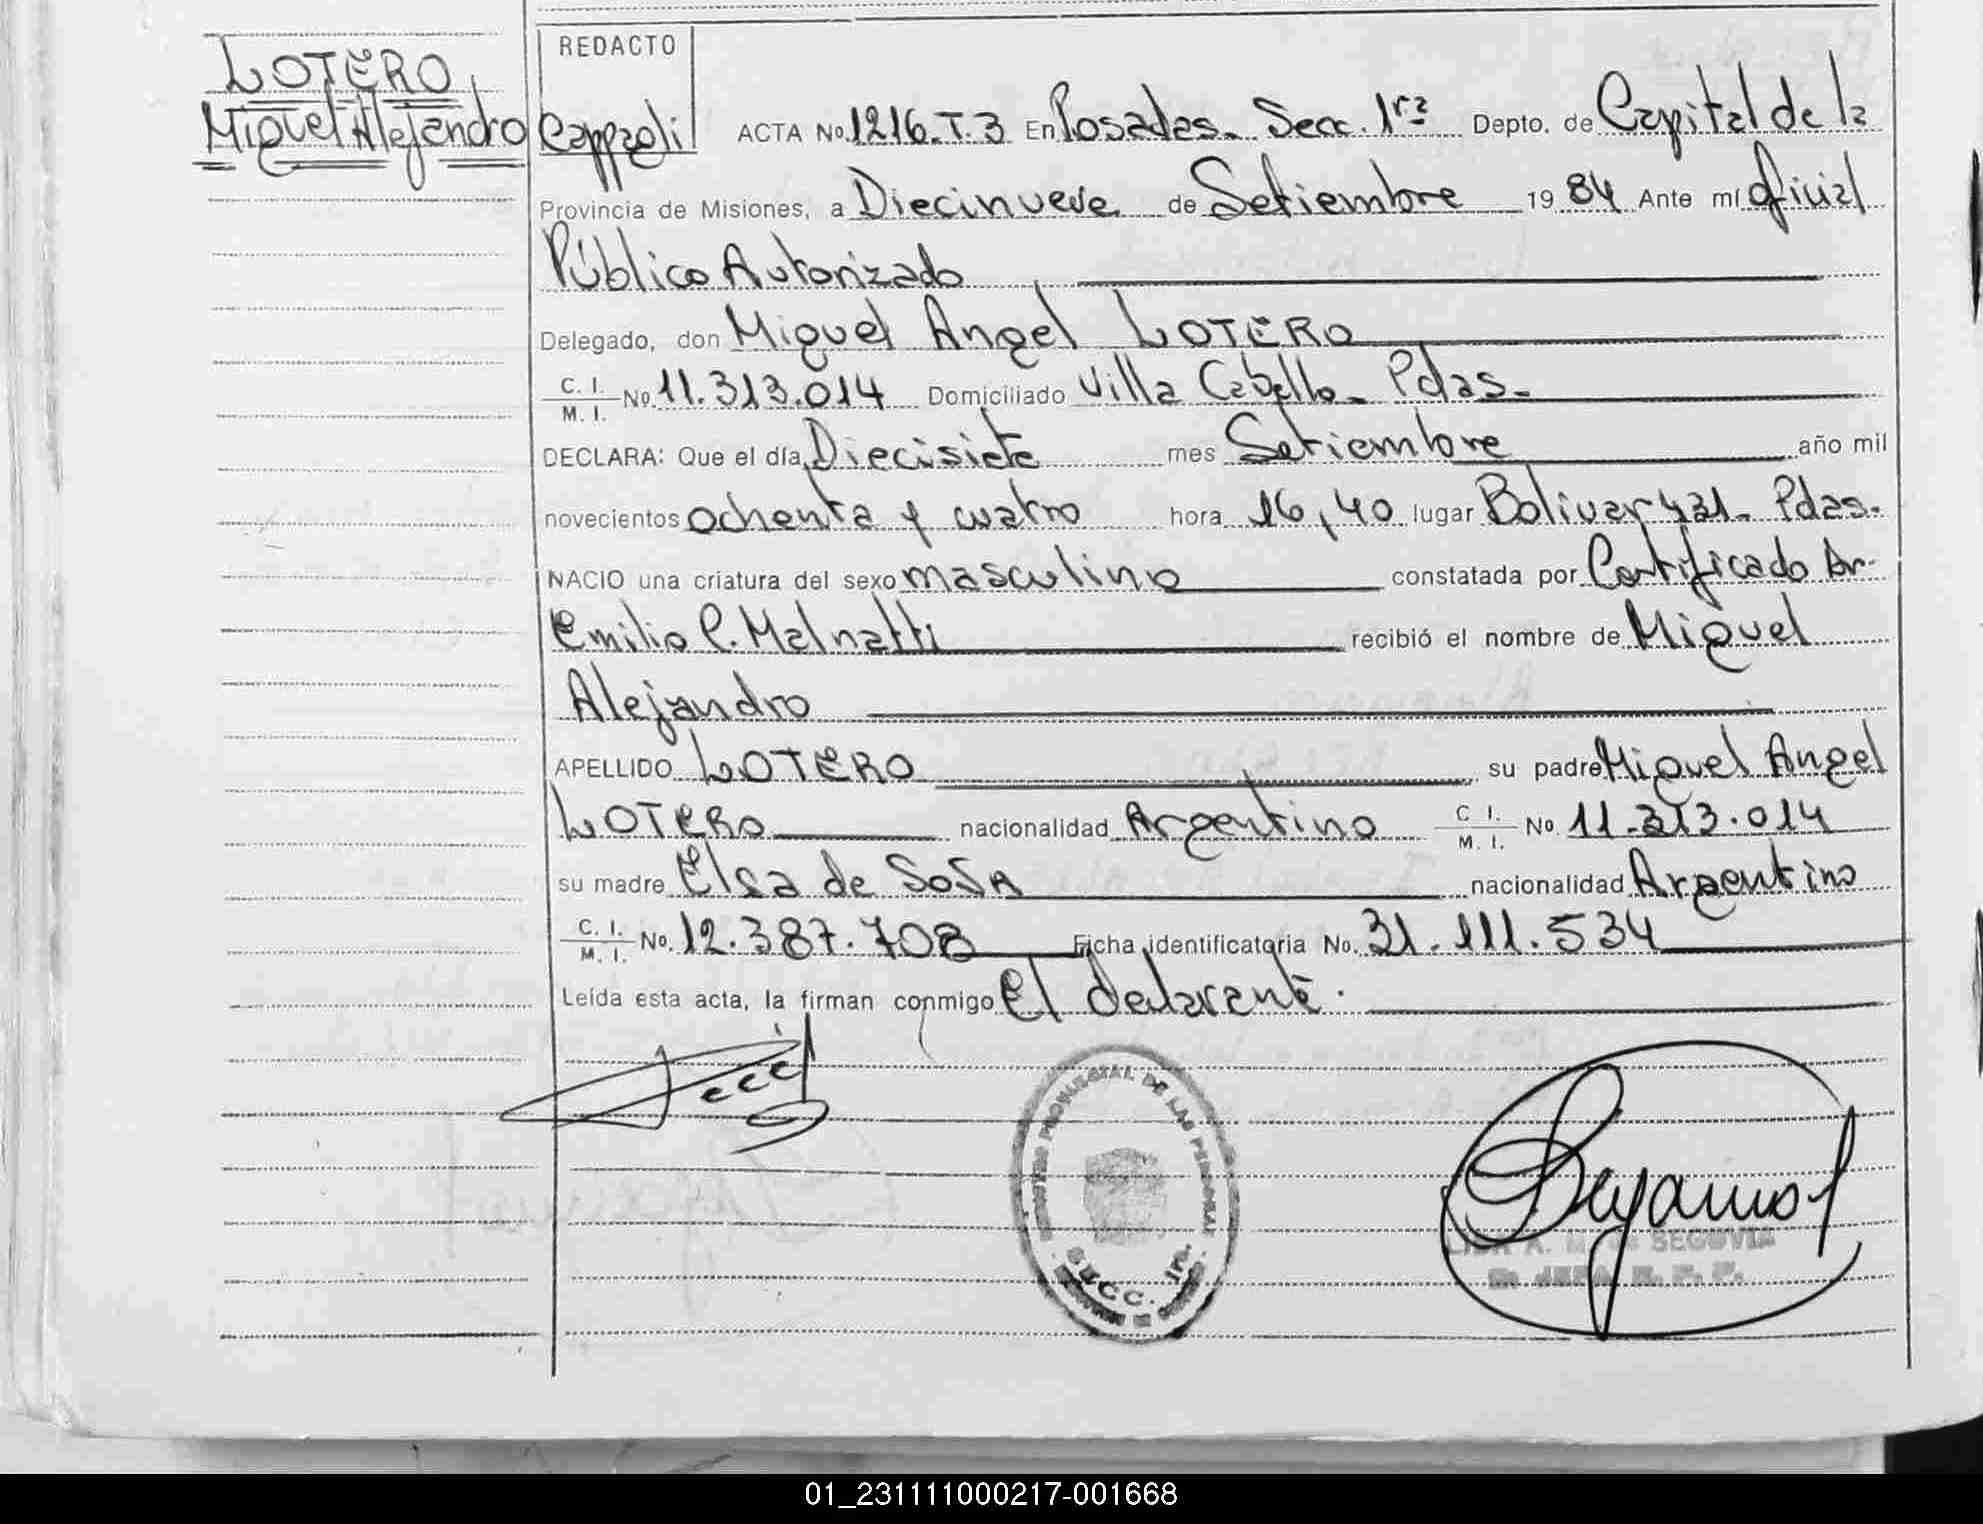 LOTERO
Miguel Alejandro
REDACTO
Cappaeli
ACTA No. 1216.T.3 En Posadas. Secc. 1ra Depto. de Capital de la
Provincia de Misiones, a Diecinueve de Setiembre 1984 Ante mí Oficial
Público Autorizado
Delegado, don Miguel Angel LOTERO
C. I. / M. I. No. 11.313.014 Domiciliado Villa Cabello. Pdas.
DECLARA: Que el día Diecisiete mes Setiembre año mil
novecientos ochenta y cuatro hora 16,40 lugar Bolivar 421. Pdas.
NACIO una criatura del sexo masculino constatada por Certificado Dr.
Emilio C. Malnatti recibió el nombre de Miguel
Alejandro
APELLIDO LOTERO su padre Miguel Angel
LOTERO nacionalidad Argentino C. I. / M. I. No. 11.313.014
su madre Elsa de SOSA nacionalidad Argentino
C. I. / M. I. No. 12.387.708 Ficha identificatoria No. 31.111.534
Leída esta acta, la firman conmigo El declarante.
PROVINCIAL DE LAS PERSONAS
SECC. 1a.
SEGOVIA
01_231111000217-001668